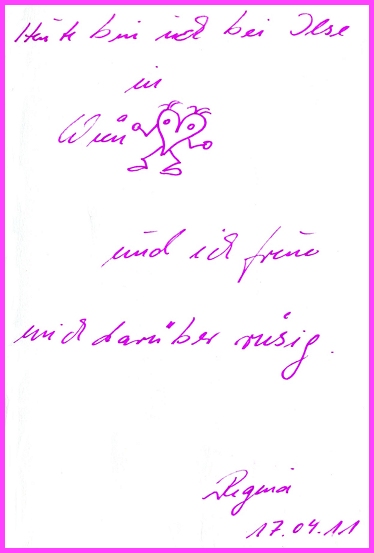 Heute bin ich bei Ilse
in
Wien
und ich freue
mich darüber riesig.
Regina
17.04.11